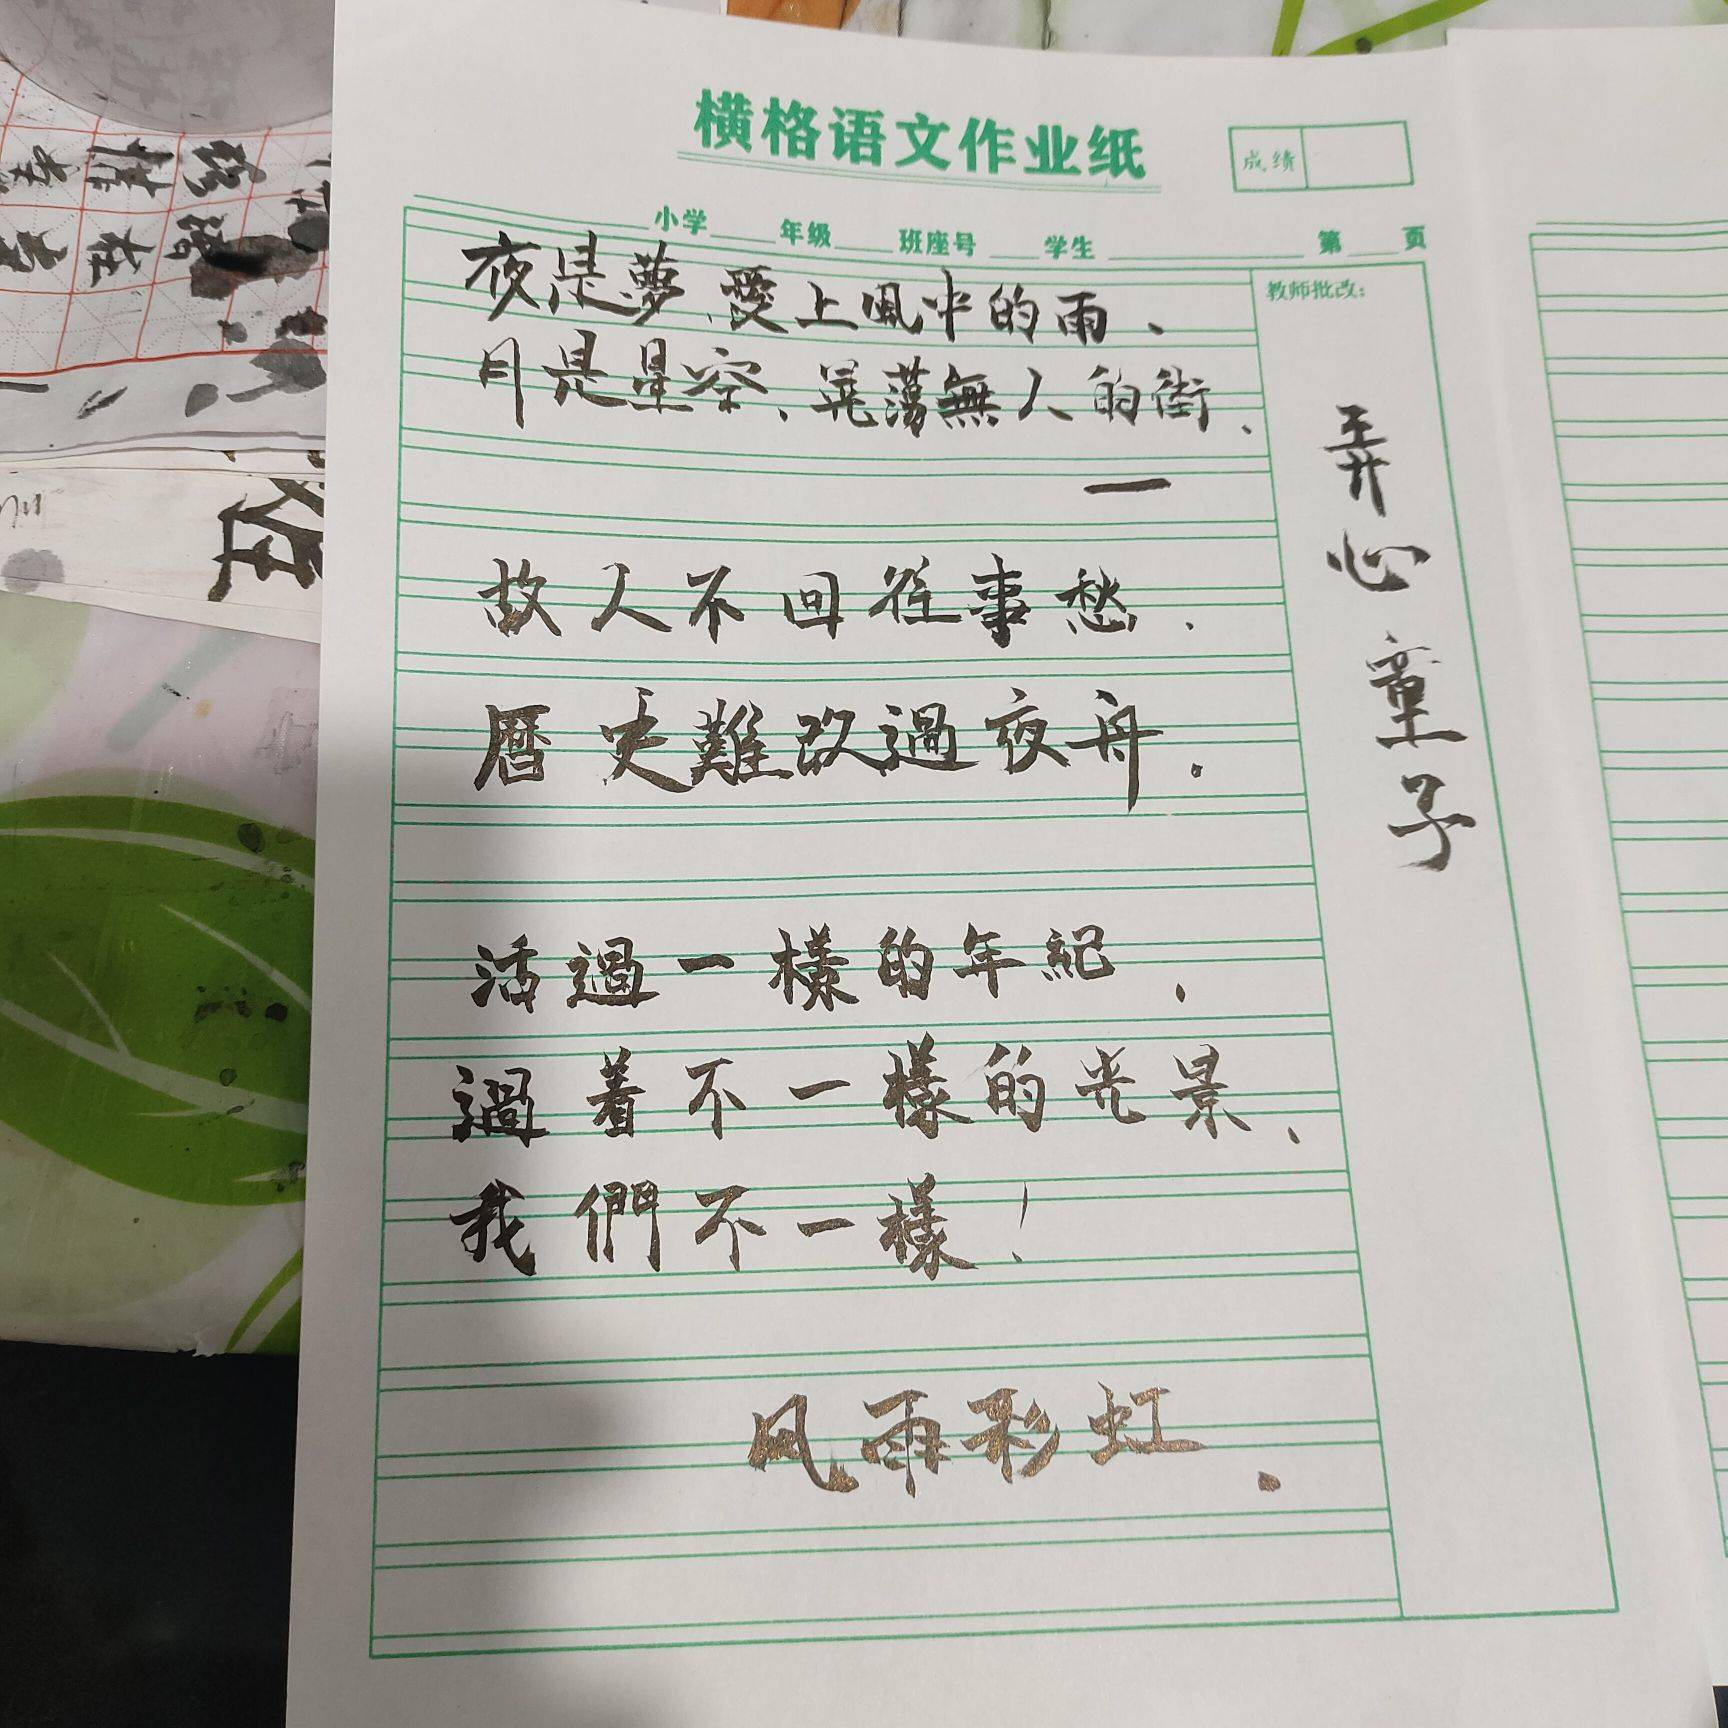 横格语文作业纸
成绩
小学 年级 班座号 学生 第 页
教师批改:
夜是夢、愛上風中的雨、
月是星空、晃蕩無人的街、
一
故人不回往事愁、
曆史難改過夜舟。
活過一樣的年紀、
過着不一樣的光景、
我們不一樣!
风雨彩虹.
弄心童子
在